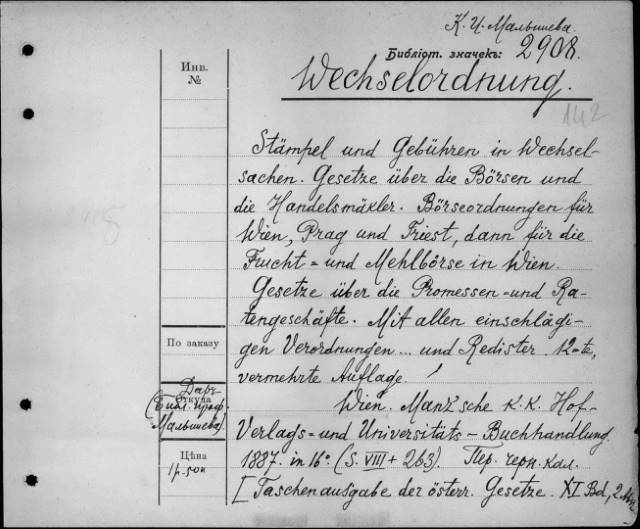 К. И. Малышева.
Библіот. значекъ: 2908.
Инв.
№
Wechselordnung.
142
Stämpel und Gebühren in Wechsel-
sachen. Gesetze über die Börsen und
die Handelsmäkler. Börseordnungen für
Wien, Prag und Triest, dann für die
Frucht= und Mehlbörse in Wien.
Gesetze über die Promessen=und Ra-
tengeschäfte. Mit allen einschlägi-
gen Verordnungen ... und Redister. 12-te,
vermehrte Auflage.
По заказу
Даръ
Откуда
(Библ. проф.
Малышева).
Wien. Manz'sche K. K. Hof-
Verlags=und Universitäts-Buchhandlung.
Цѣна
1р. 50к
1887. in 16° (S. VIII + 263). Пер. черн. кол.
[Taschenausgabe der österr. Gesetze. XI Bd, 2